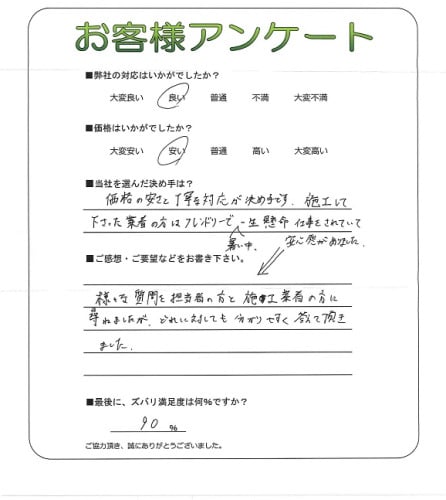 お客様アンケート
■弊社の対応はいかがでしたか?
大変良い 良い 普通 不満 大変不満
■価格はいかがでしたか?
大変安い 安い 普通 高い 大変高い
■当社を選んだ決め手は?
価格の安さと丁寧な対応が決め手です。施工して
下さった業者の方はフレンドリーで一生懸命仕事をされていて
暑い中、
安心感がありました。
■ご感想・ご要望などをお書き下さい。
様々な質問を担当者の方と施工業者の方に
尋ねましたが、どれに対しても分かりやすく答えて頂き
ました。
■最後に、ズバリ満足度は何%ですか?
90 %
ご協力頂き、誠にありがとうございました。